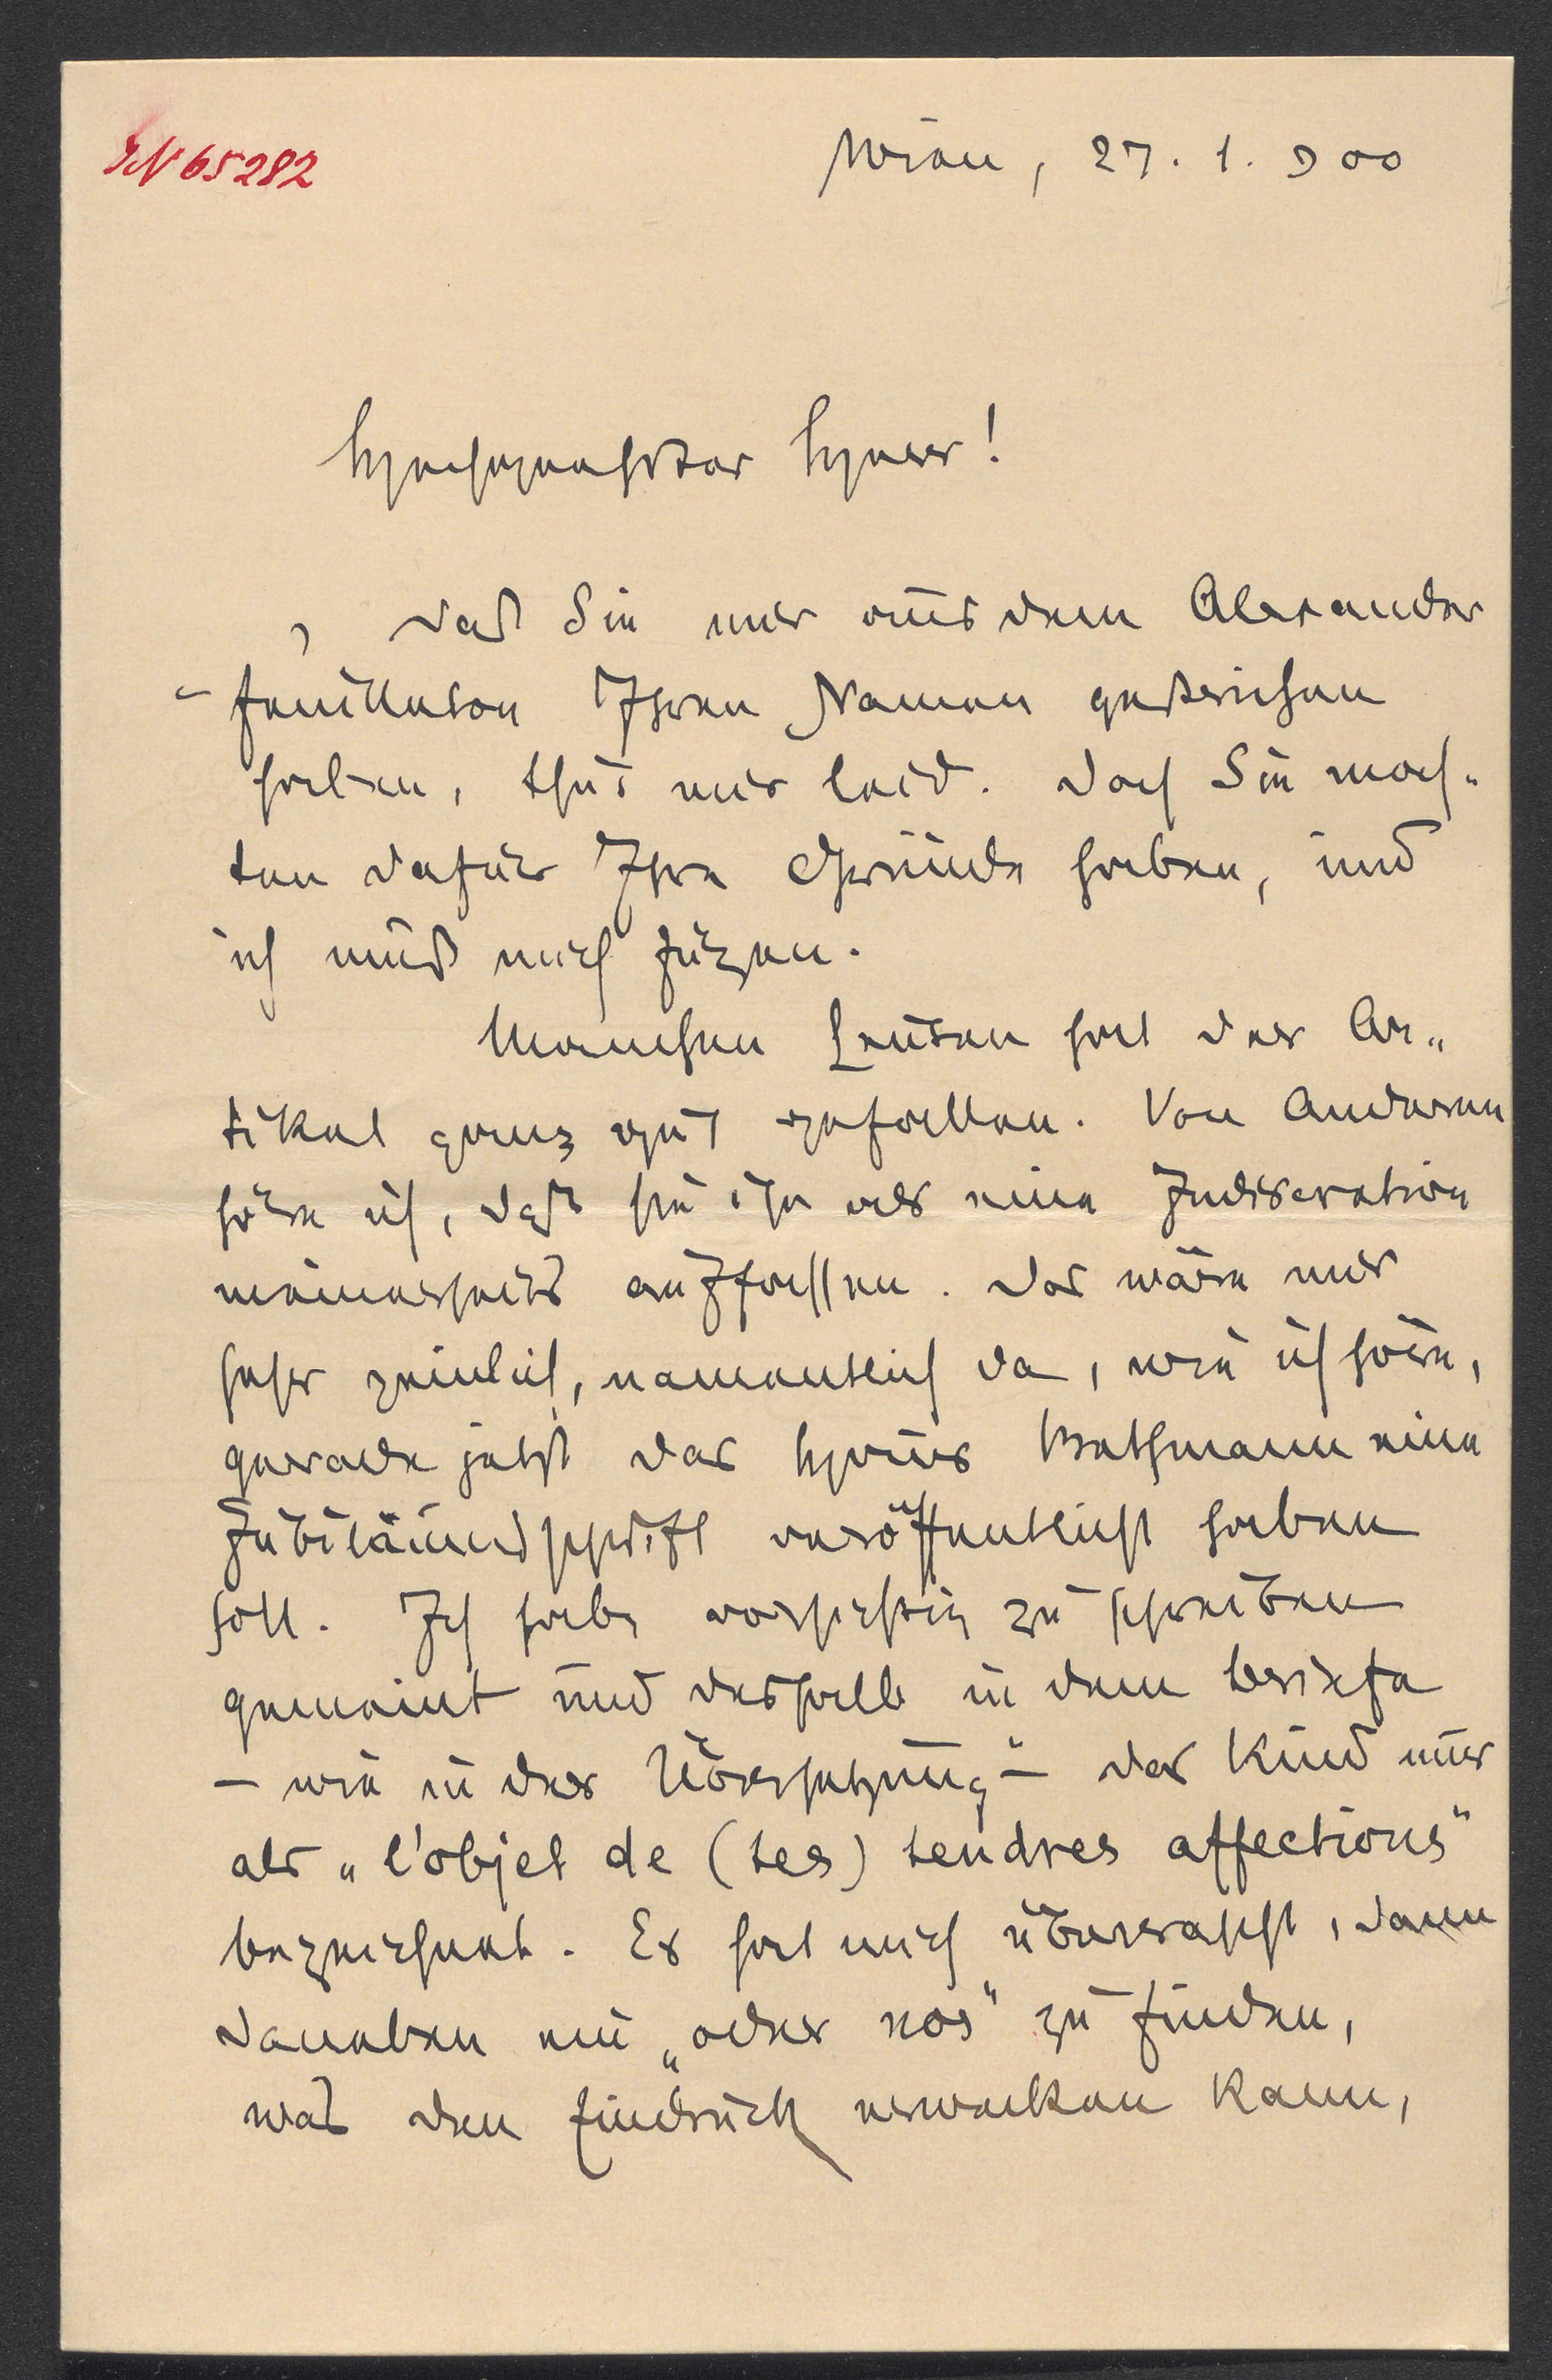 JN 65282
Wien, 27. 1. 900
Hochgeehrter Herr!
Daß Sie mir aus dem Alexander
-feuilleton Ihren Namen gestrichen
haben, thut mir leid. Doch Sie moch„
ten dafür Ihre Gründe haben, und
ich muß mich fügen.
Manchen Leuten hat der Ar„
tikel ganz gut gefallen. Von Anderen
höre ich, daß sie ihn als eine Indiscretion
meinerseits auffassen. Das wäre mir
sehr peinlich, namentlich da, wie ich höre,
gerade jetzt das Haus Bethmann eine
Jubiläumsschrift veröffentlicht haben
soll. Ich habe vorsichtig zu schreiben
gemeint und deshalb in dem Briefe
– wie in der Übersetzung – das Kind nur
als „l'objet de (tes) tendres affections"
bezeichnet. Es hat mich überrascht, dann
daneben ein „oder nos" zu finden,
was den Eindruck erwecken kann,